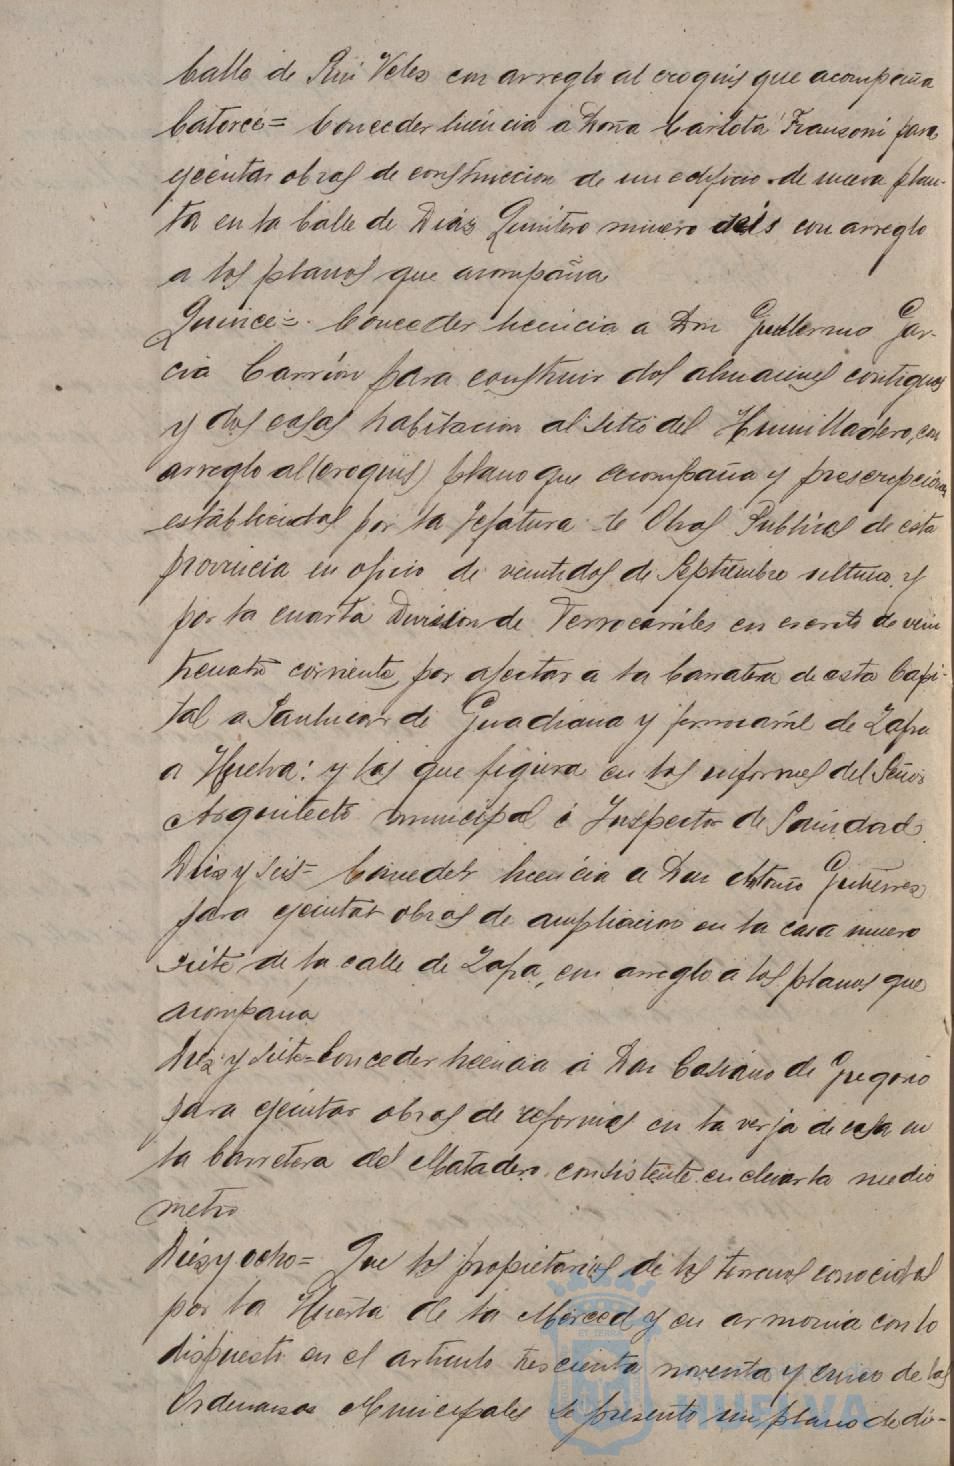 Calle de Rui Velez con arreglo al croquis que acompaña
Catorce= Conceder licencia a Doña Carlota Franzoni para
ejecutar obras de construccion de un edificio de nueva plan-
ta en la Calle de Diaz Quintero número seis con arreglo
a los planos que acompaña
Quince=. Conceder licencia a Don Guillermo Gar-
cia Carrión para construir dos almacenes contiguos
y dos casas habitacion al sitio del Humilladero, con
arreglo al (croquis) plano que acompaña y prescripciones
establecidas por la Jefatura de Obras Publicas de esta
provincia en oficio de veintidos de Septiembre ultimo y
por la cuarta Division de Ferrocarriles en escrito de vein
ticuatro corriente, por afectar a la Carratera de esta Capi-
tal a Sanlucar de Guadiana y ferrocarril de Zafra
a Huelva: y las que figura en los informes del Señor
Arquitecto municipal é Inspector de Sanidad.
Diez y seis= Conceder licencia a Don Antonio Gutierrez
para ejecutar obras de ampliacion en la casa número
siete de la calle de Zafra, con arreglo a los planos que
acompaña
Diez y siete= Conceder licencia á Don Casiano de Gregorio
para ejecutar obras de reformas en la verja de casa en
la Carretera del Matadero consistente en elevarla medio
metro
Diez y ocho= Que los propietarios de los terrenos conocidos
por la Huerta de la Merced y en armonia con lo
dispuesto en el articulo trescientos noventa y cinco de las
Ordenanzas Municipales se presente un plano de di-
HUELVA